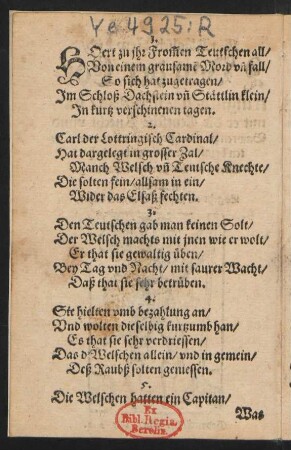 Ye 4925:R
1.
HOert zu jhr From̃en Teutschen all/
Von einem grausame Mord vñ fall/
So sich hat zugetragen/
Im Schloß Dachstein vñ Stättlin klein/
In kurtz verschinenen tagen.
2.
Carl der Lottringisch Cardinal/
Hat dargelegt in grosser Zal/
Manch Welsch vñ Teutsche Knechte/
Die solten sein/allsam in ein/
Wider das Elsaß fechten.
3.
Den Teutschen gab man keinen Solt/
Der Welsch machts mit jnen wie er wolt/
Er that sie gewaltig üben/
Bey Tag vnd Nacht/ mit saurer Wacht/
Daß that sie sehr betrüben.
4.
Sie hielten vmb bezahlung an/
Vnd wolten dieselbig kurtzumb han/
Es that sie sehr verdriessen/
Das d Welschen allein/ vnd in gemein/
Deß Raubß solten geniessen.
5.
Die Welschen hatten ein Capitan/
Was
Ex
Bibl. Regia
Berolin.